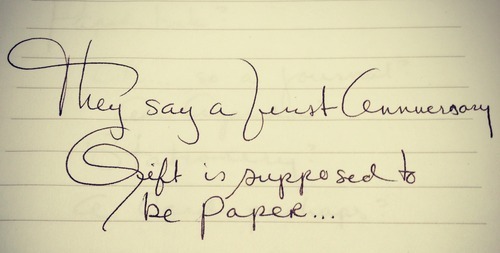 They say a first Anniversary
Gift is supposed to
be paper...